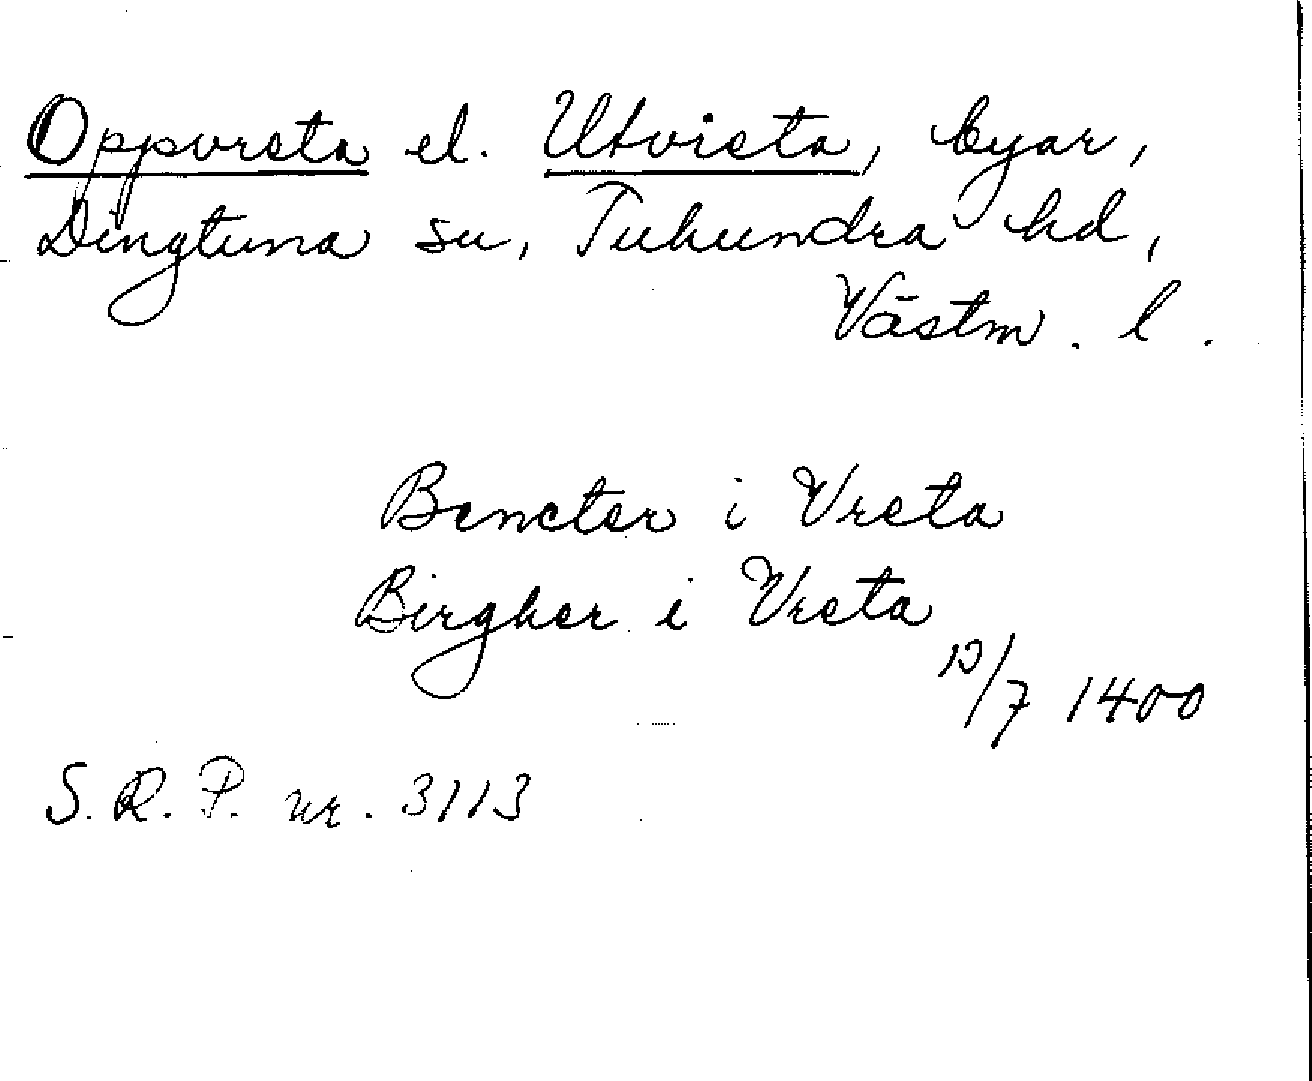 Oppvreta el. Utvreta, byar,
Dingtuna sn, Tuhundra hd,
Västm. l.
Bencter i Vreta
Birgher i Vreta
10/7 1400
S.R.P. nr. 3113